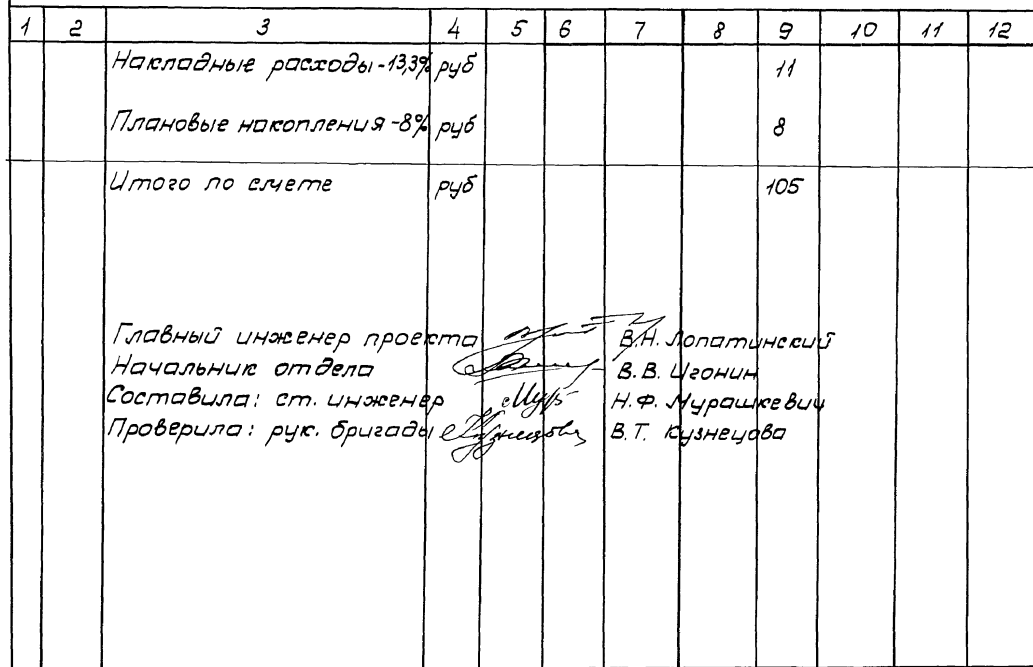 1 2 3 4 5 6 7 8 9 10 11 12
Накладные расходы-13,3% руб 11
Плановые накопления-8% руб 8
Итого по смете руб 105
Главный инженер проекта В.Н. Лопатинский
Начальник отдела В.В. Игонин
Составила: ст. инженер Мур Н.Ф. Мурашкевич
Проверила: рук. бригады Кузнецова В.Т. Кузнецова